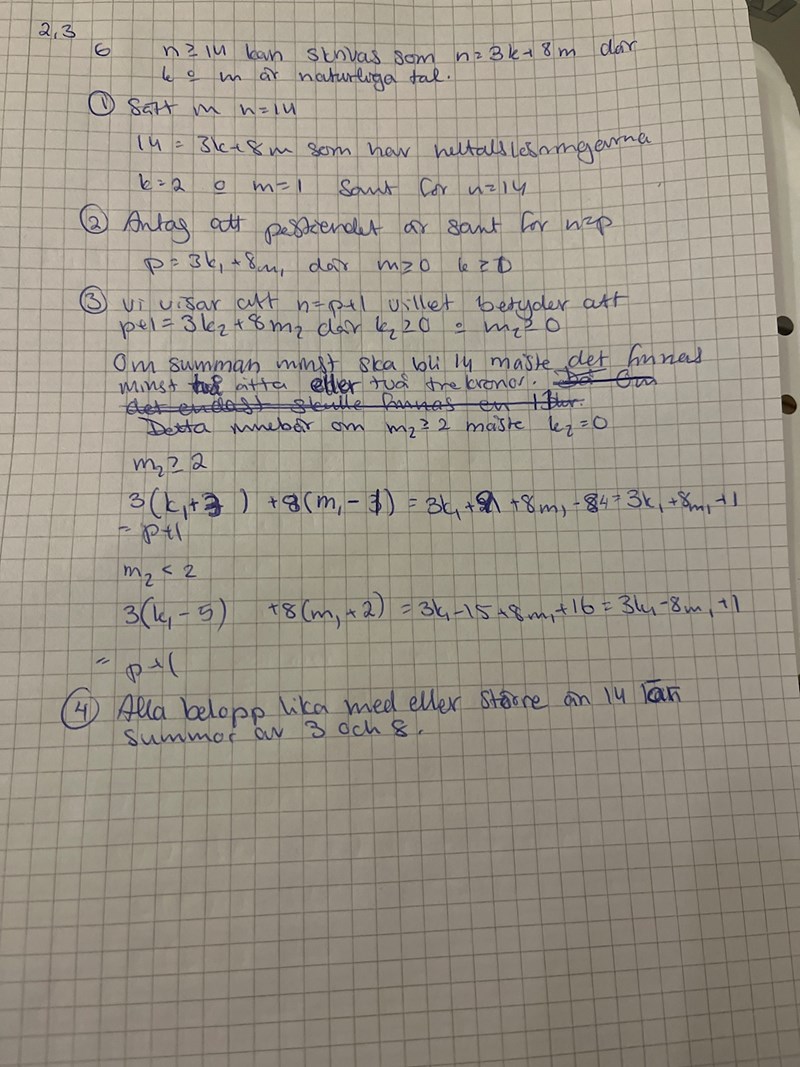 2,3
6 n≥14 kan skrivas som n=3k+8m där
k o m är naturliga tal.
① Sätt in n=14
14 = 3k+8m som har heltalslösningarna
k=2 o m=1 Sant för n=14
② Antag att påståendet är sant för n=p
p=3k₁+8m₁ där m≥0 k≥0
③ Vi visar att n=p+1 vilket betyder att
p+1=3k₂+8m₂ där k₂≥0 o m₂≥0
Om summan minst ska bli 14 måste det finnas
minst åtta eller två trekronor.
Detta innebär om m₂≥2 måste k₂=0
m₂≥2
3(k₁+3) +8(m₁-1) = 3k₁+9 +8m₁-8 = 3k₁+8m₁+1
= p+1
m₂<2
3(k₁-5) +8(m₁+2) = 3k₁-15+8m₁+16 = 3k₁-8m₁+1
= p+1
④ Alla belopp lika med eller större än 14 kan
summor av 3 och 8.